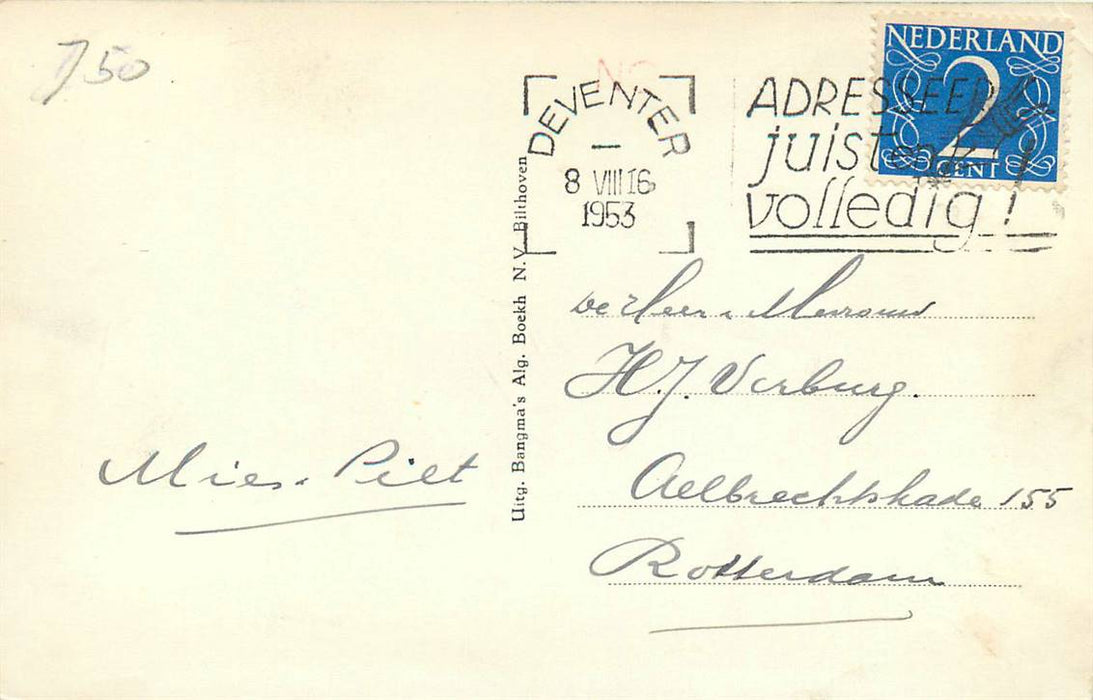 7 50
NEDERLAND
2
CENT
DEVENTER
8 VIII 16
1953
ADRESSEER
juist en
volledig!
Uitg. Bangma's Alg. Boekh N.V. Bilthoven
De Heer & Mevrouw
H.J. Verburg.
Aelbrechtskade 155
Rotterdam
Mies. Piet